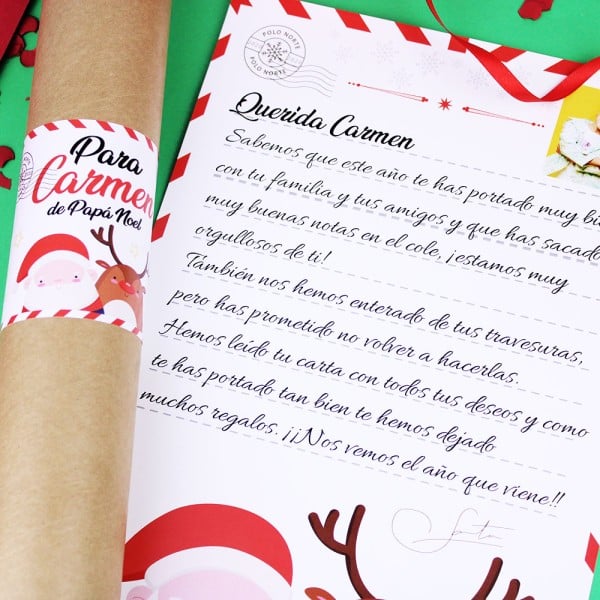 Para
Carmen
de Papá Noel
POLO NORTE
POLO NORTE
Querida Carmen
Sabemos que este año te has portado muy bi
con tu familia y tus amigos y que has sacado
muy buenas notas en el cole, ¡estamos muy
orgullosos de ti!
También nos hemos enterado de tus travesuras,
pero has prometido no volver a hacerlas.
Hemos leído tu carta con todos tus deseos y como
te has portado tan bien te hemos dejado
muchos regalos. ¡¡Nos vemos el año que viene!!